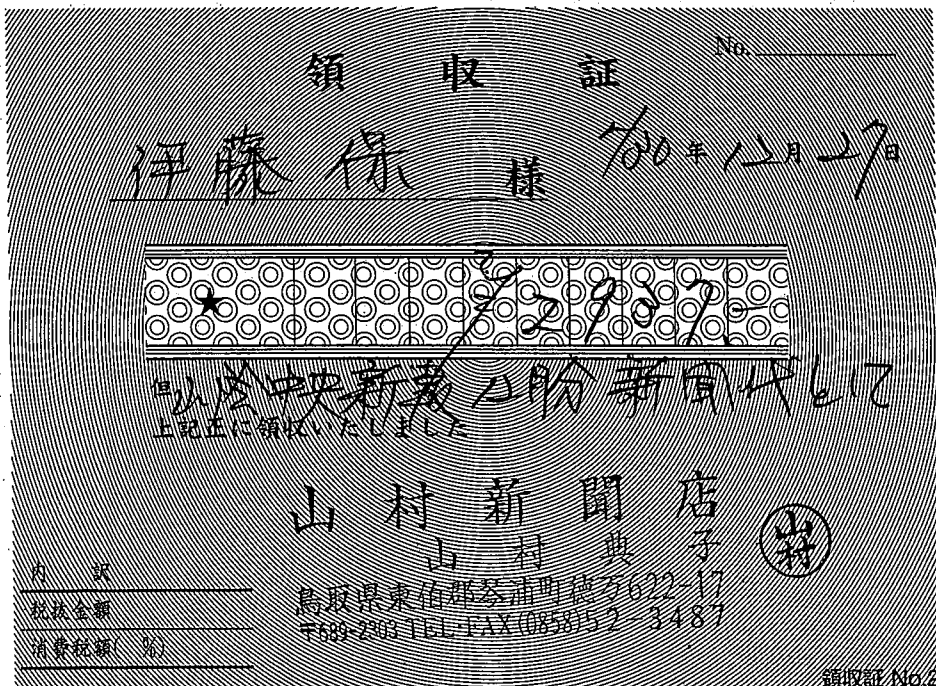 No.
領収証
伊藤 保 様 H30年12月27日
★ ¥2987-
但 山陰中央新報 12月分 新聞代として
上記正に領収いたしました
山村新聞店
山村典子
山村
内訳
税抜金額
消費税額( %)
鳥取県東伯郡琴浦町徳万622-17
〒689-2303 TEL・FAX(0858)52-3487
領収証 No.2